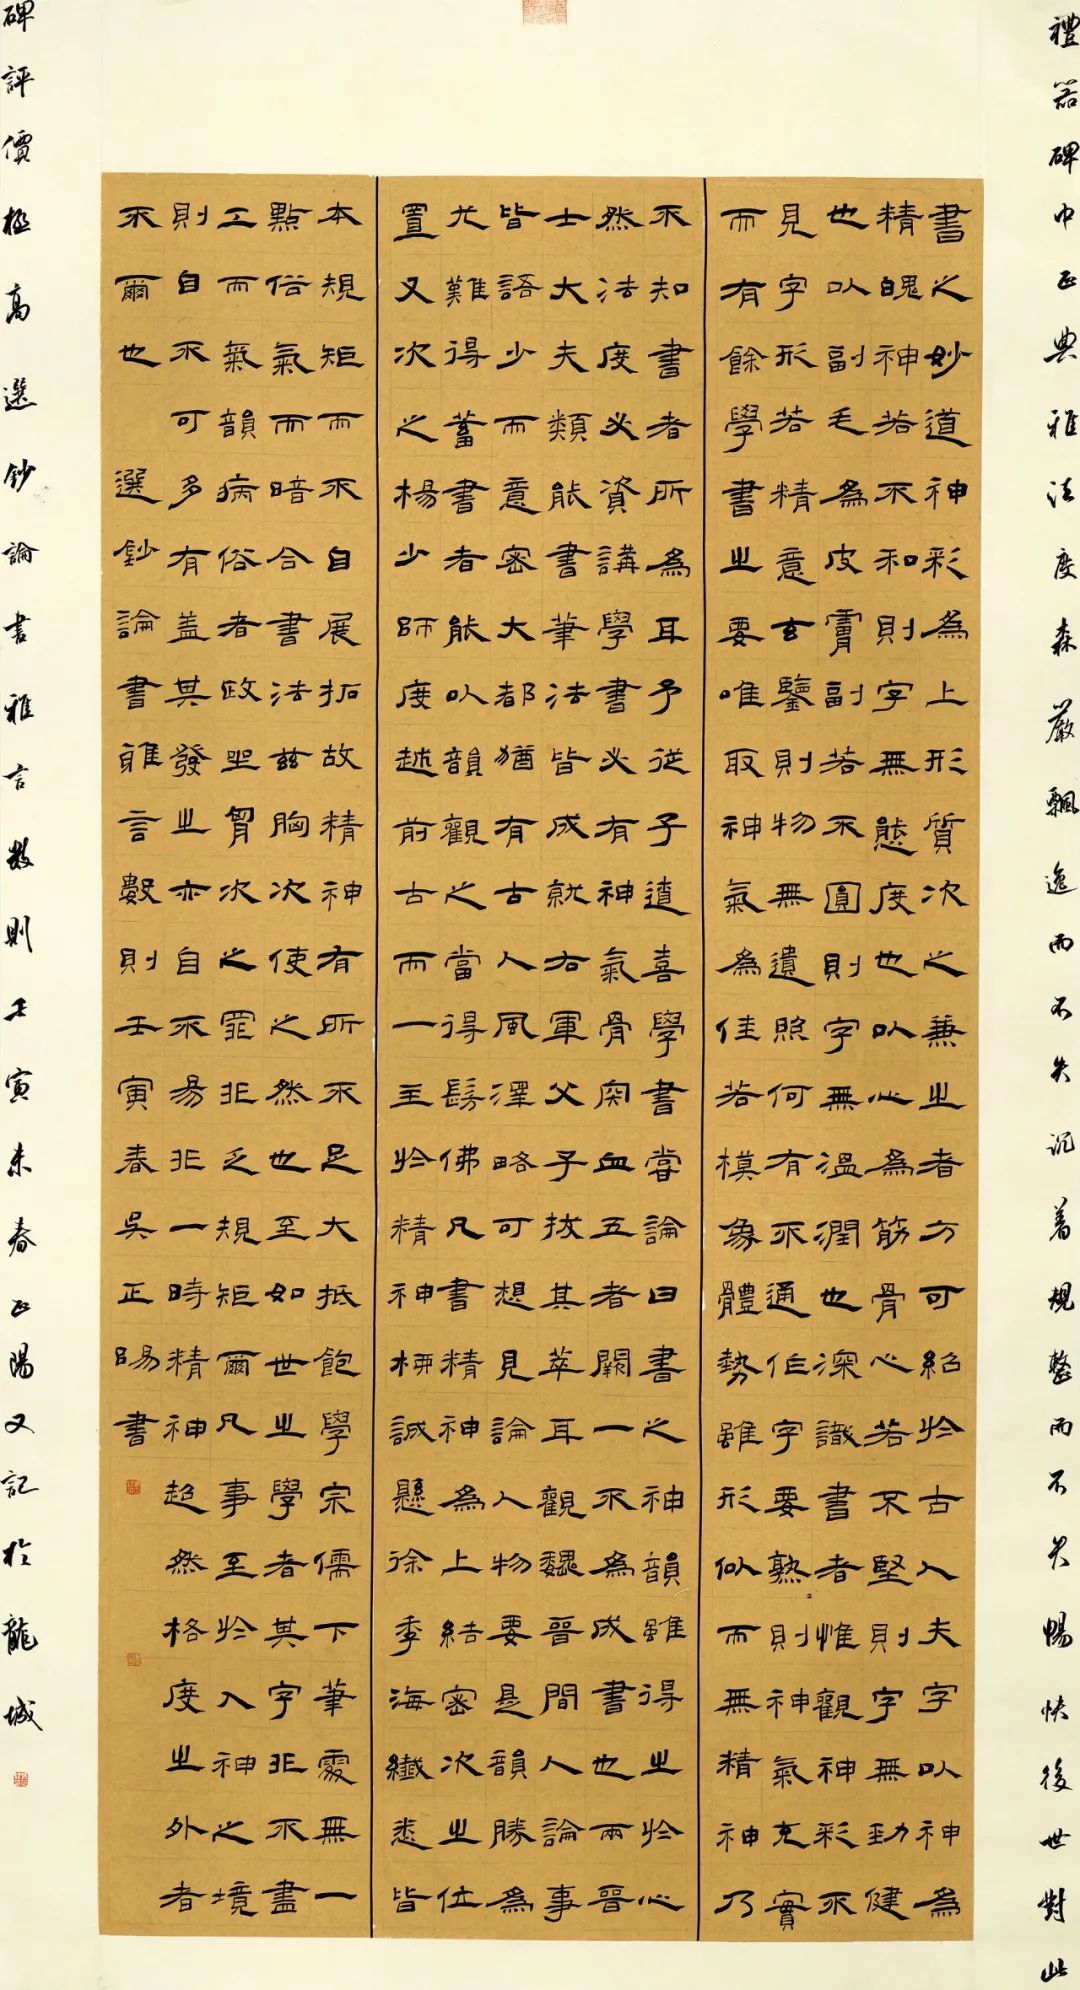 禮器碑中正典雅法度森嚴飄逸而不失沉着規整而不失暢快後世對此
書之妙道神彩為上形質次之兼之者方可紹於古人夫字以神為
精魄神若不和則字無態度也以心為筋骨心若不堅則字無勁健
也以副毛為皮膚副若不圓則字無溫潤也深識書者惟觀神彩不
見字形若精意玄鑒則物無遺照何有不通作字要熟則神氣充實
而有餘學書之要唯取神氣為佳若模象體勢雖形似而無精神乃
不知書者所為耳予從子遼喜學書嘗論曰書之神韻雖得之於心
然法度必資講學書必有神氣骨肉血五者闕一不為成書也兩晉
士大夫類能書筆法皆成就右軍父子拔其萃耳觀魏晉間人論事
皆語少而意密大都猶有古人風澤略可想見論人物要是韻勝為
尤難得蓄書者能以韻觀之當得髣佛凡書精神為上結密次之位
置又次之楊少師度越前古而一主於精神柳誠懸徐季海纖悉皆
本規矩而不自展拓故精神有所不足大抵飽學宗儒下筆處無一
點俗氣而暗合書法茲胸次使之然也至如世之學者其字非不盡
工而氣韻病俗者政坐胸次之罪非乏規矩爾凡事至於入神之境
則自不可多有蓋其發之亦自不易非一時精神超然格度之外者
不爾也 選鈔論書雅言數則壬寅春吳正暘書
碑評價極高選鈔論書雅言數則壬寅末春正暘又記於龍城